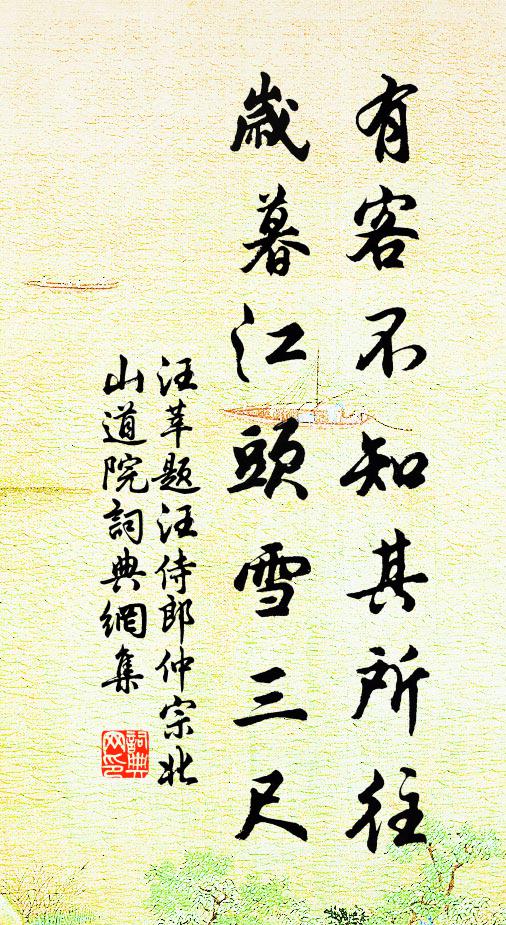 有客不知其所往
歲暮江頭雪三尺
汪莘题汪侍郎仲宗北
山道院詞典網集
詞典
网印